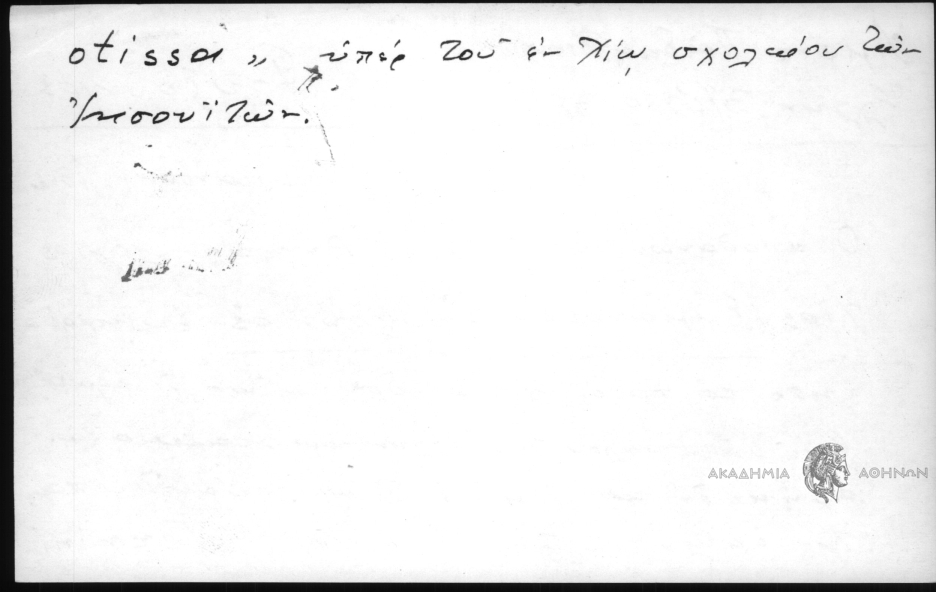 otissa » ὑπέρ τοῦ ἐν Χίῳ σχολείου τῶν
Ἰησουϊτῶν.
ΑΚΑΔΗΜΙΑ ΑΘΗΝΩΝ